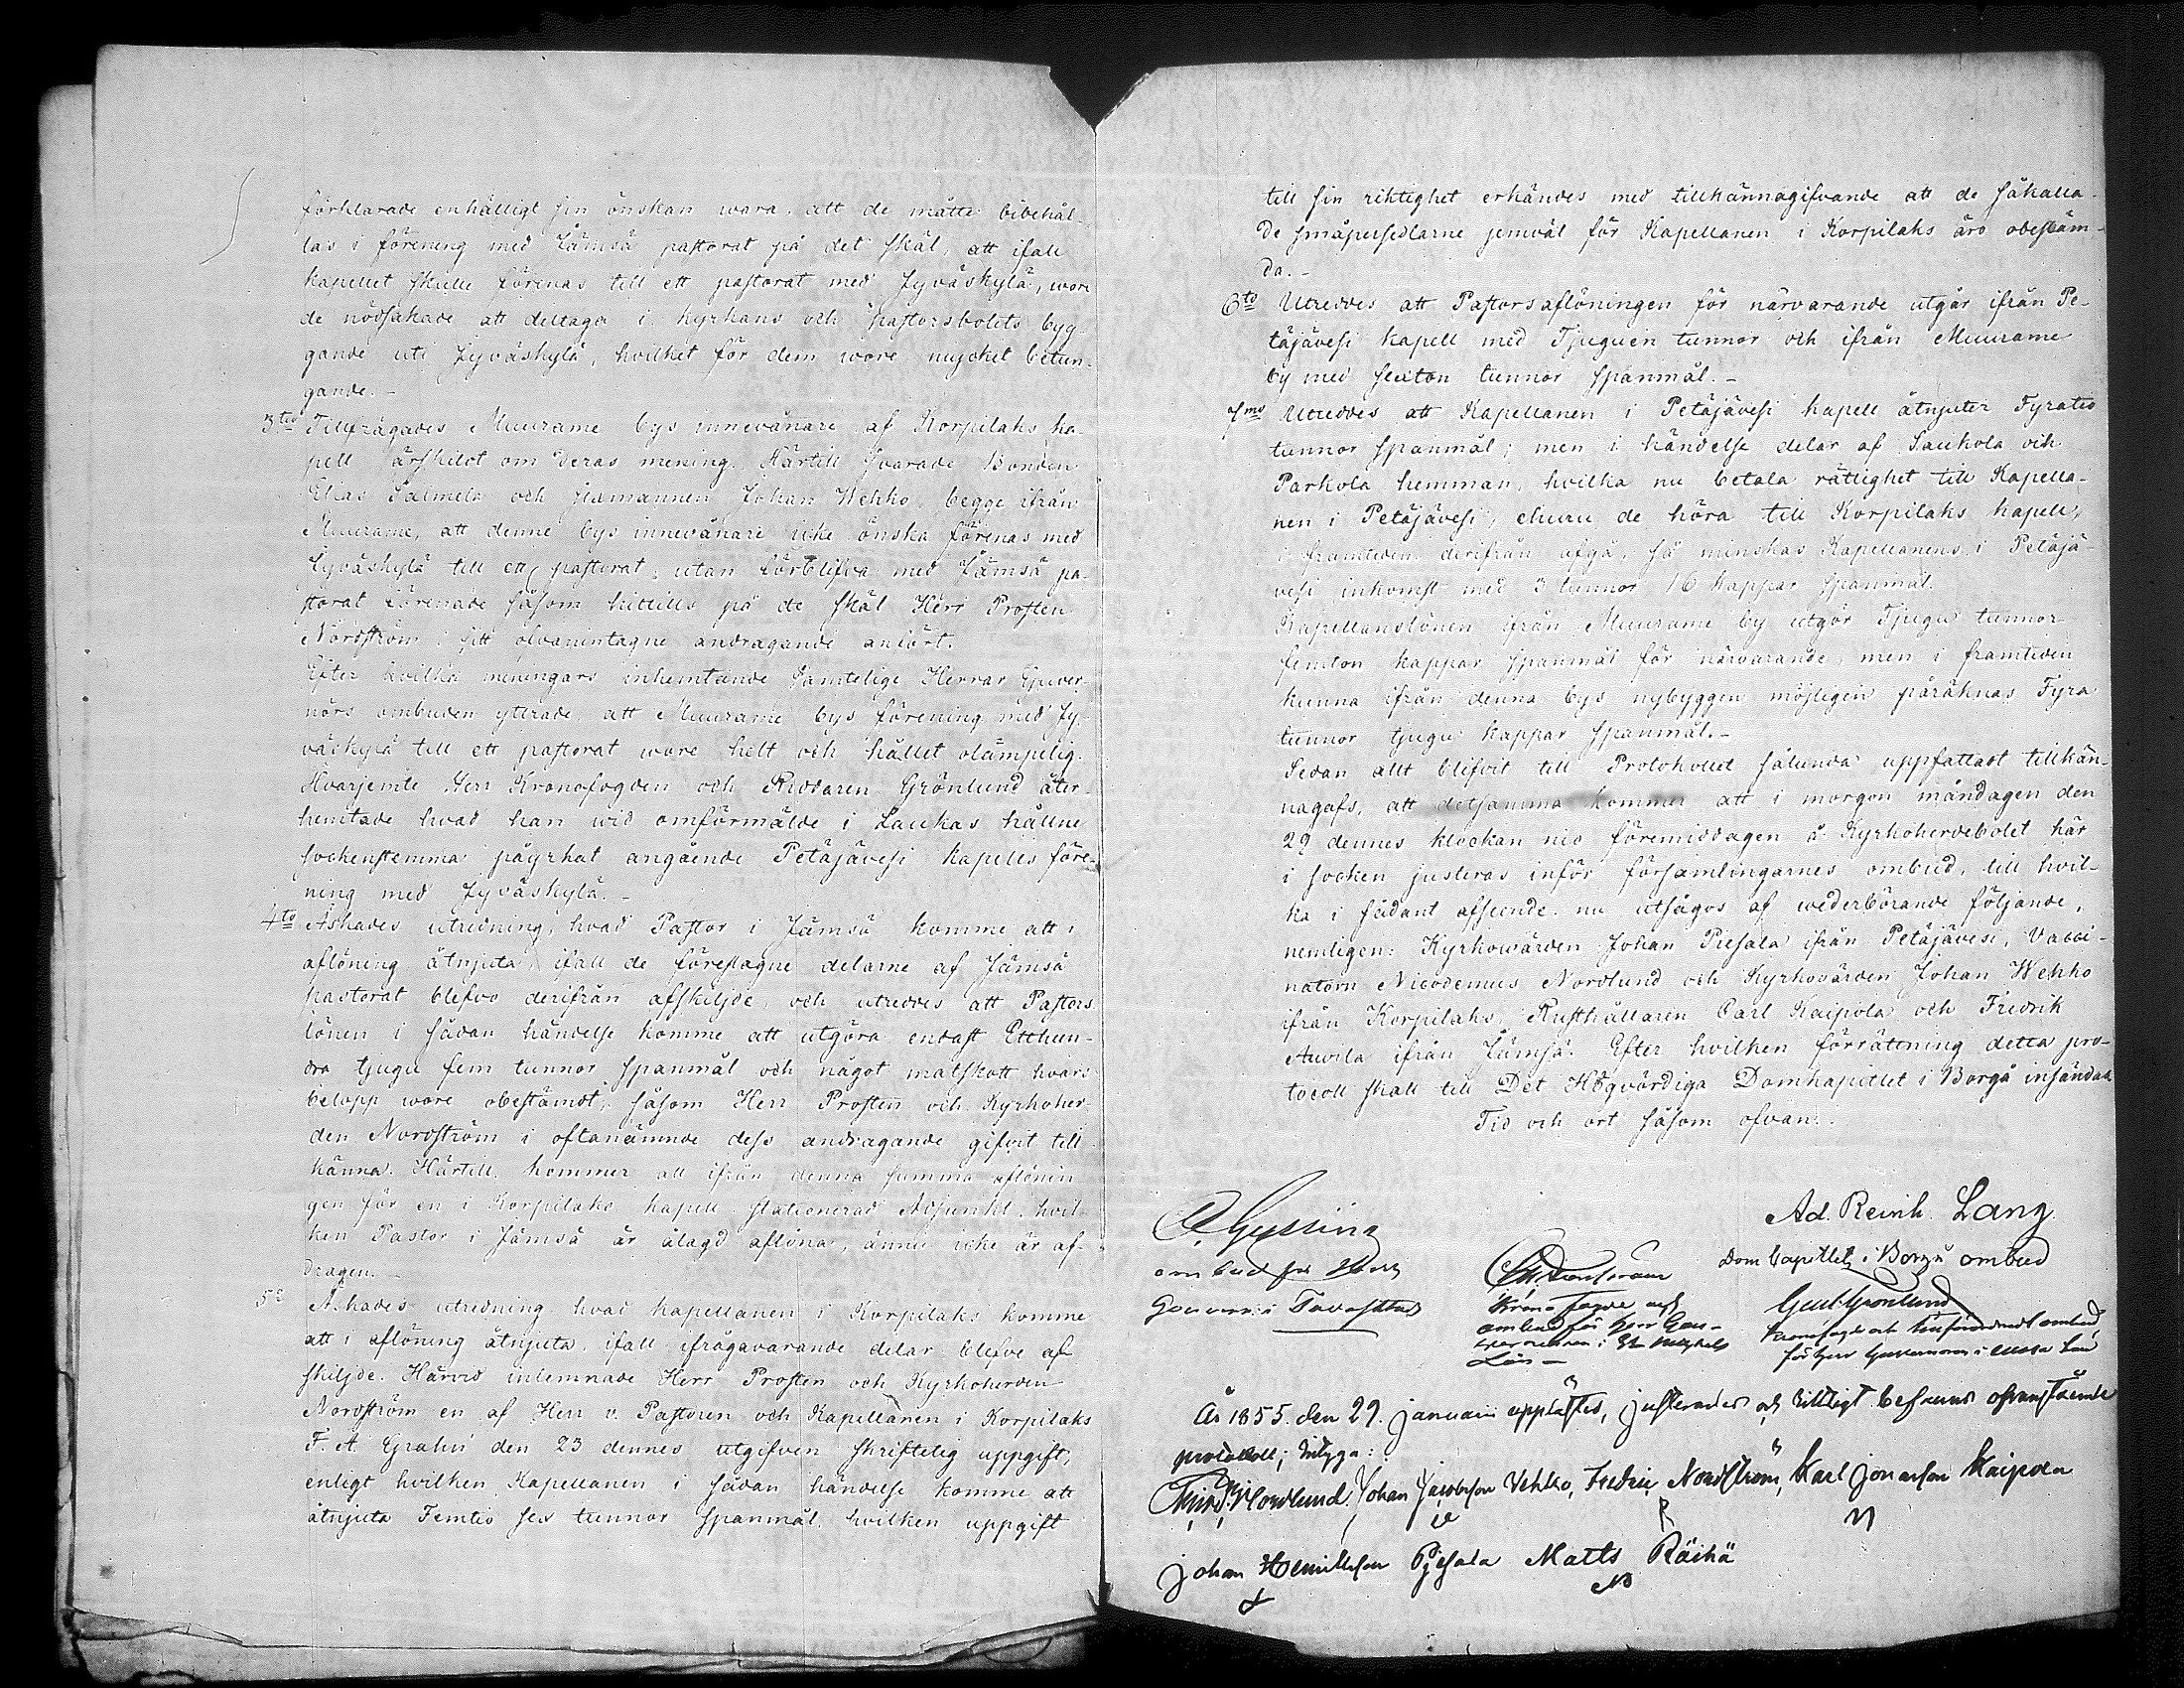 förklarade enhälligt sin önskan wara, att de måtte bibehål-
las i förening med Jämsä pastorat på det skäl, att ifall
kapellet skulle förenas till ett pastorat med Jyväskylä, wore
de nödsakade att deltaga i kyrkans och pastorsbolets byg-
gande uti Jyväskylä, hvilket för dem wore mycket betun-
gande. -
3tio Tillfrågades Muurame bys innevånare af Korpilaks ka-
pell särskildt om deras mening. Härtill svarade Bonden
Elias Salmela och Johan Wehko, begge ifrån
Muurame, att denne bys innevånare icke önska förenas med
Jyväskylä till ett pastorat, utan förblifva med Jämsä pa-
storat förenade såsom hittills på de skäl Herr Prosten
Nordström i sitt ofvanintagne andragande anfört.
Efter hvilka meningars inhemtande Samtelige Herrar Guver-
nörs ombuden yttrade, att Muurame bys förening med Jy-
väskylä till ett pastorat wore helt och hållet olämpelig.
Hvarjemte Herr Kronofogden och Riddaren Grönlund åter-
hemtade hvad han wid omförmälde i Laukas hållne
sockenstemma påyrkat angående Petäjävesi kapells före-
ning med Jyväskylä. -
4to Äskades utredning, hvad Pastor i Jämsä komme att i
aflöning åtnjuta, ifall de föreslagne delarne af Jämsä
pastorat blefvo derifrån afskiljde, och utreddes att Pastors
lönen i sådan händelse komme att utgöra endast Etthun-
dra tjugu fem tunnor spanmål och något matskott hvars
belopp wore obestämdt, såsom Herr Prosten och Kyrkoher-
den Nordström i oftanämnde dess andragande gifvit till-
känna. Härtill kommer att ifrån denna summa aflönin
gen för en i Korpilaks kapell stationerad Adjunkt, hvil-
ken Pastor i Jämsä är ålagd aflöna, ännu icke är af-
dragen. -
5o Äskades utredning hvad kapellanen i Korpilaks komme
att i aflöning åtnjuta, ifall ifrågavarande delar blefve af
skiljde. Härvid inlemnade Herr Prosten och Kyrkoherden
Nordström en af Herr v. Pastoren och Kapellanen i Korpilaks
F. A. Grahn den 23 dennes utgifven skriftelig uppgift,
enligt hvilken Kapellanen i sådan händelse komme att
åtnjuta Femtio sex tunnor spanmål, hvilken uppgift
till sin riktighet erkändes med tillkännagifvande att de såkalla-
de småpersedlarne jemväl för Kapellanen i Korpilaks äro obestäm-
da. -
6to Utreddes att Pastorsaflöningen för närvarande utgår ifrån Pe-
täjävesi kapell med Tjuguen tunnor och ifrån Muurame
by med sexton tunnor spanmål. -
7mo Utreddes att Kapellanen i Petäjävesi kapell åtnjuter Fyratio
tunnor spanmål; men i händelse delar af Saukola och
Parkola hemman, hvilka nu betala rättighet till Kapella-
nen i Petäjävesi, ehuru de höra till Korpilaks kapell,
i framtiden derifrån afgå, så minskas Kapellanens i Petäjä-
vesi inkomst med 3 tunnor 16 kappar spanmål.
Kapellanslönen ifrån Muurame by utgör Tjugu tunnor
femton kappar spanmål för närvarande, men i framtiden
kunna ifrån denna bys nybyggen möjligen påräknas Fyra
tunnor tjugu kappar spanmål. -
Sedan allt blifvit till Protokollet sålunda uppfattadt tillkän-
nagafs, att detsamma kommer att i morgon måndagen den
29 dennes klockan nio föremiddagen å Kyrkoherdebolet här
i socken justeras inför församlingarnes ombud, till hvil-
ka i sådant afseende nu utsågos af wederbörande följande,
nemligen: Kyrkowärden Johan Piesala ifrån Petäjävesi, Vacci-
natorn Nicodemus Nordlund och Kyrkovärden Johan Wehko
ifrån Korpilaks, Rusthållaren Carl Kaipola och Fredrik
Auvila ifrån Jämsä. Efter hvilken förrättning detta pro-
tocoll skall till Det Högvördiga Domkapitlet i Borgå insändas
Tid och ort såsom ofvan.
Ad. Reinh. Lang.
Dom Capitlets i Borgå ombud
ombud för Herr
Gouvern: i Tavastehus
Krono Fogde och
ombud för Herr Gou-
verneuren i St Michels
Län -
Gust. Grönlund
Kronofogde och ombud
för Herr Guvernören i Wasa Län
År 1855 den 29. Januarii upplästes, justerades och riktigt befunnits ofvanstående
protokoll; intyga:
Nordlund, Johan Jacobsson Vehko, Fredric Nordström, Karl Jonasson Kaipola
Johan Henriksson Piesala Matts Räihä